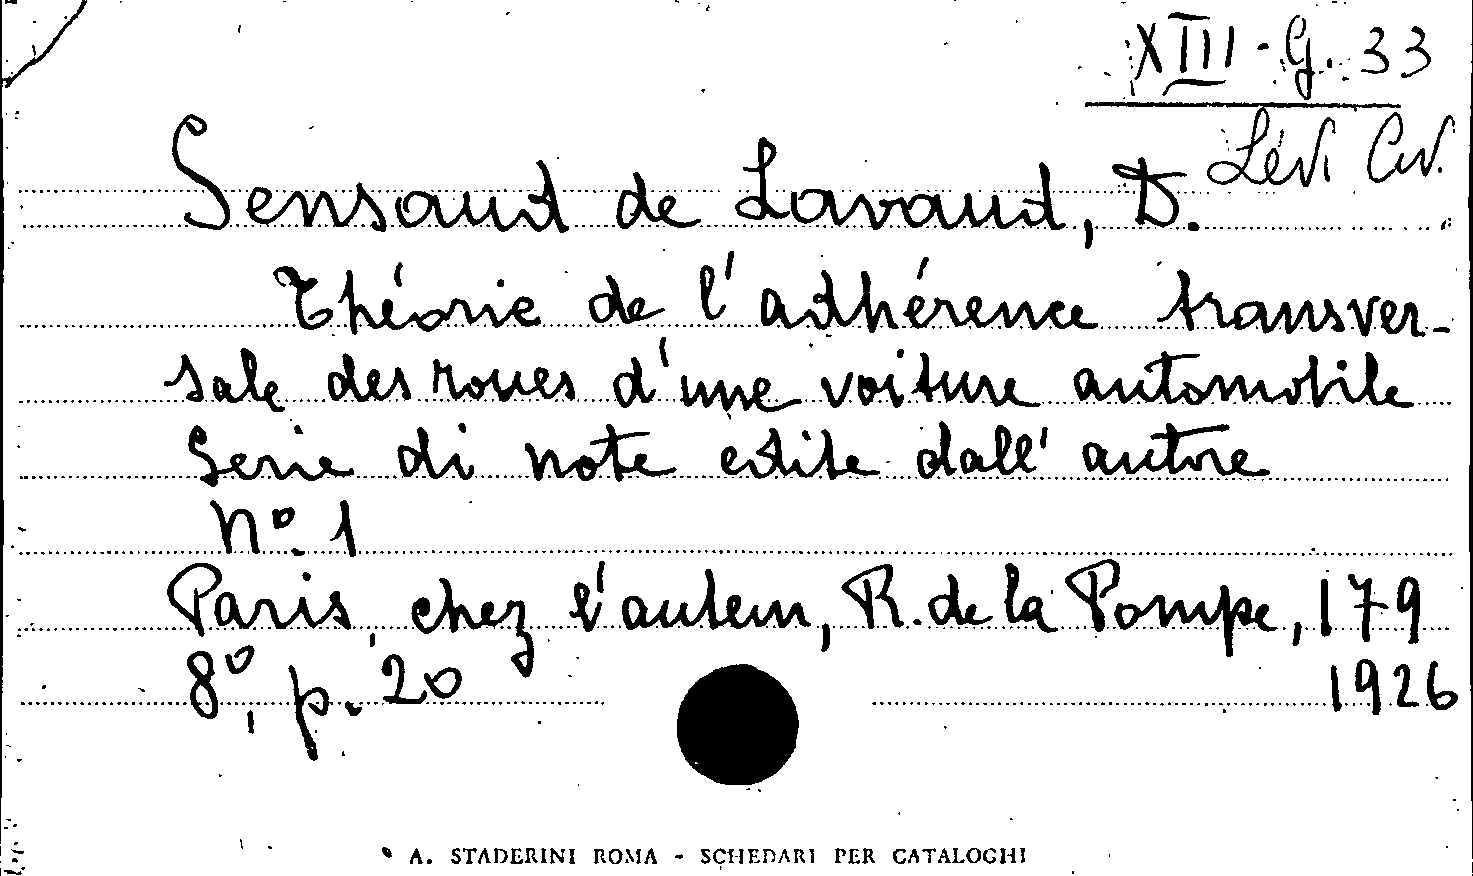 XIII - G. 33
Lévi Civ.
Sensaud de Lavaud, D.
Théorie de l'adhérence transver-
sale des roues d'une voiture automobile
Serie di note edite dall'autore
N.º 1
Paris, chez l'auteur, R. de la Pompe, 179
8º, p. 20 1926
A. STADERINI ROMA - SCHEDARI PER CATALOGHI